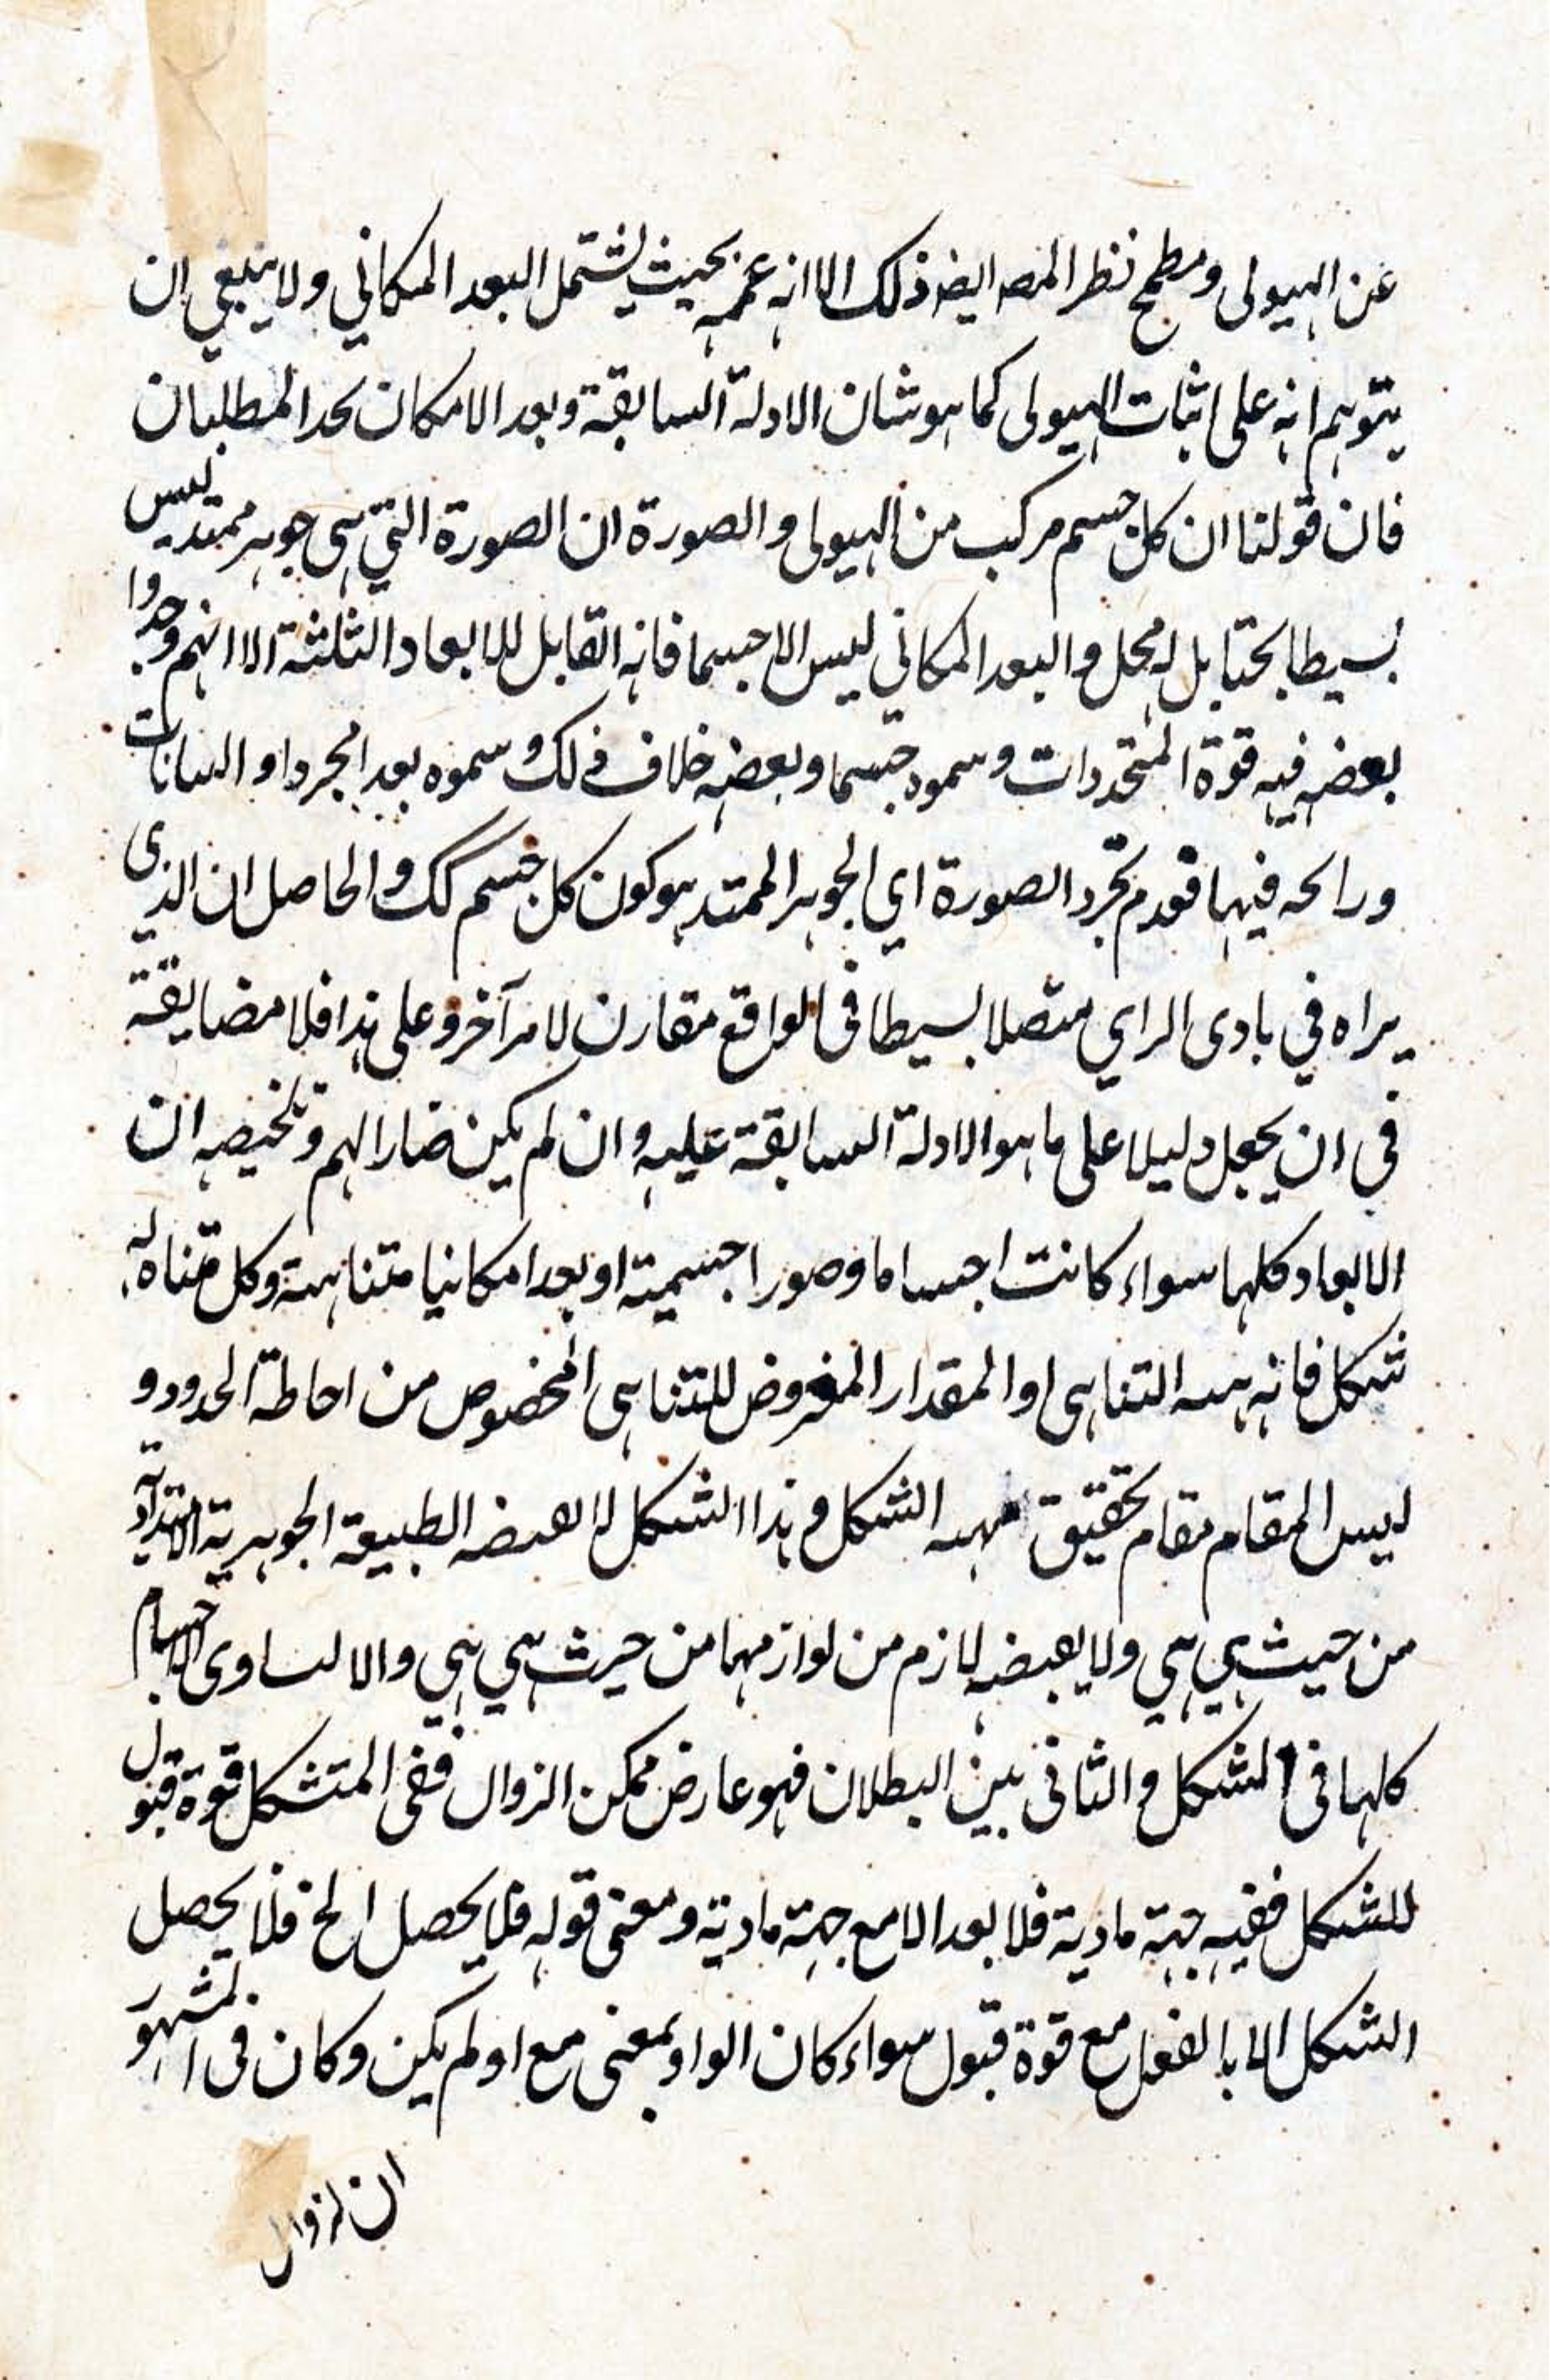 عن الهيولى ومطمح نظر المصه ايضه ذلك الا انه عممه بحيث يشتمل البعد المكاني ولا ينبغي ان
يتوهم انه على اثبات الهيولى كما هو شان الادلة السابقة وبعد الامكان المطلبان
فان قولنا ان كل جسم مركب من الهيولى والصورة ان الصورة التي هي جوهر ممتد ليس
بسيطا بل له محل والبعد المكاني ليس الا جسما فانه القابل للابعاد الثلثة الا انهم وجدوا
بعضه فيه قوة المتجددات وسموه جسما وبعضه خلاف ذلك وسموه بعد المجرد او
فيها فعدم تجرد الصورة اي الجوهر الممتد هو كون كل جسم كك والحاصل ان الذي
يراه في بادى الراي متصلا بسيطا فى الواقع مقارن لامر آخر وعلى هذا فلا مضايقة
في ان يجعل دليلا على ما هو الادلة السابقة عليه وان لم يكن ضارا لهم وتلخيصه ان
الابعاد كلها سواء كانت اجساما وصورا جسمية او بعدا مكانيا متناهية وكل متناه له
شكل فانه هيه التناهى او المقدار المعروض للتناهى المخصوص من احاطة الحدود و
ليس المقام مقام تحقيق مهيه الشكل وهذا الشكل لا يقتضيه الطبيعة الجوهرية الامتدادية
من حيث هي هي ولا يقتضيه لازم من لوازمها من حيث هي هي والا لتساوى الاجسام
كلها فى الشكل والثانى بين البطلان فهو عارض ممكن الزوال ففى المتشكل قوة قبول
للشكل ففيه جهة مادية فلا بعد الا مع جهة مادية ومعنى قوله فلا يحصل الخ فلا يحصل
الشكل الا بالفعل مع قوة قبول سواء كان الواو بمعنى مع او لم يكن وكان فى المشهور
ان لزوال